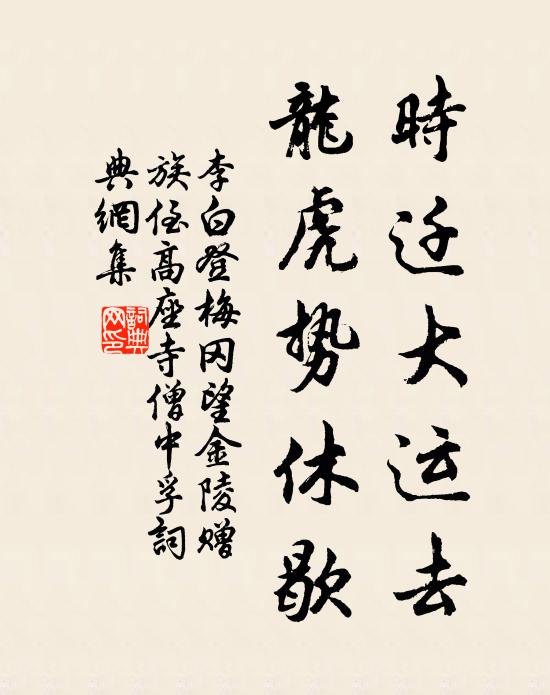 時迁大运去
龍虎势休歇
李白登梅冈望金陵赠
族侄高座寺僧中孚詞
典網集
詞典网印